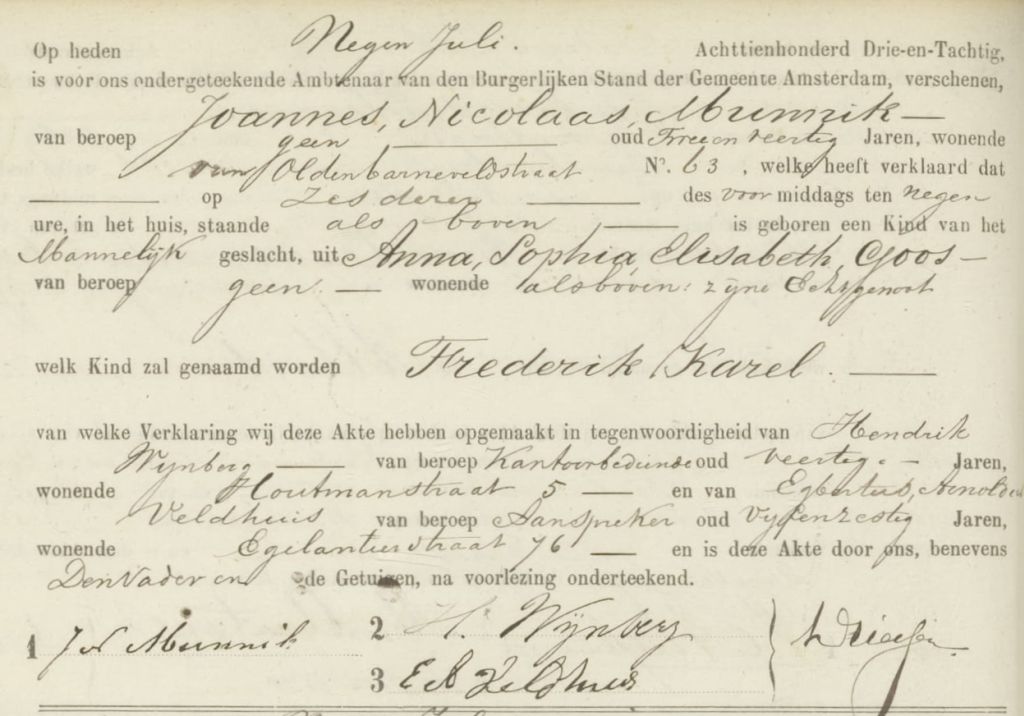 Op heden Negen Juli. Achttienhonderd Drie-en-Tachtig,
is voor ons ondergeteekende Ambtenaar van den Burgerlijken Stand der Gemeente Amsterdam, verschenen,
Joannes, Nicolaas, Munnik —
van beroep geen — oud Twee en veertig Jaren, wonende
van Oldenbarneveldstraat No. 63, welke heeft verklaard dat
— op Zesderer — des voormiddags ten negen
ure, in het huis, staande als boven — is geboren een Kind van het
Mannelijk geslacht, uit Anna, Sophia, Elisabeth, Goos —
van beroep geen. — wonende als boven: zijne Echtgenoot
welk Kind zal genaamd worden Frederik Karel. —
van welke Verklaring wij deze Akte hebben opgemaakt in tegenwoordigheid van Hendrik
Wijnberg — van beroep Kantoorbediende oud veertig. — Jaren,
wonende Houtmanstraat 5 — en van Egbertus, Arnoldus
Veldhuis van beroep Aanspreker oud vijfenzestig Jaren,
wonende Egelantierstraat 76 — en is deze Akte door ons, benevens
Den Vader en de Getuigen, na voorlezing onderteekend.
1 J N Munnik 2 H. Wijnberg
3 E A Veldhuis